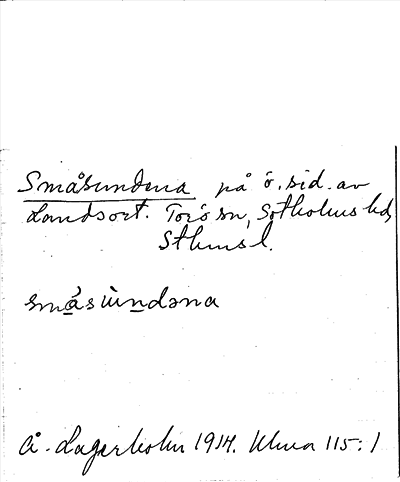 Småsundena på ö. sid. av
Landsort. Torö sn, Sotholms hd,
Sthmsl.
småsùndəna
Å. Lagerholm 1914. Uma 115:1